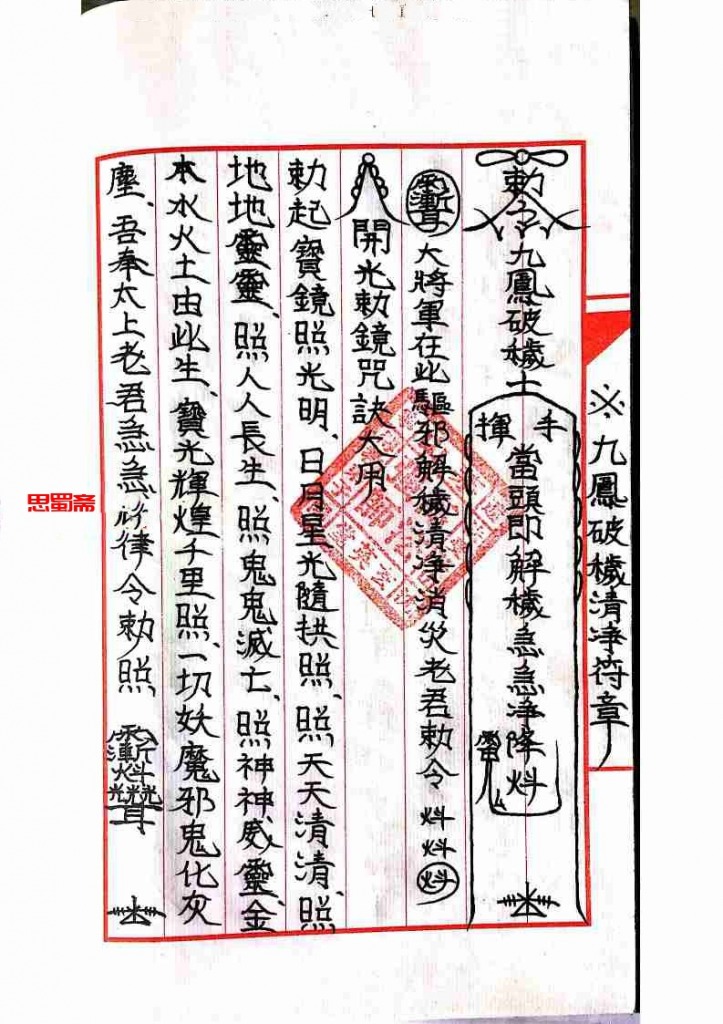 ※九鳳破穢清净符章
勅令九鳳破穢士
手揮
當頭即解穢急急净降炓
大將軍在此驅邪解穢清净消災老君勅令炓炓炓
開光勅鏡咒訣大用
勅起寶鏡照光明、日月星光隨拱照、照天天清清、照
地地靈靈、照人人長生、照鬼鬼滅亡、照神神威靈、金
木水火土由此生、寶光輝煌千里照、一切妖魔邪鬼化灰
塵、吾奉太上老君急急 律令勅照
思蜀斋